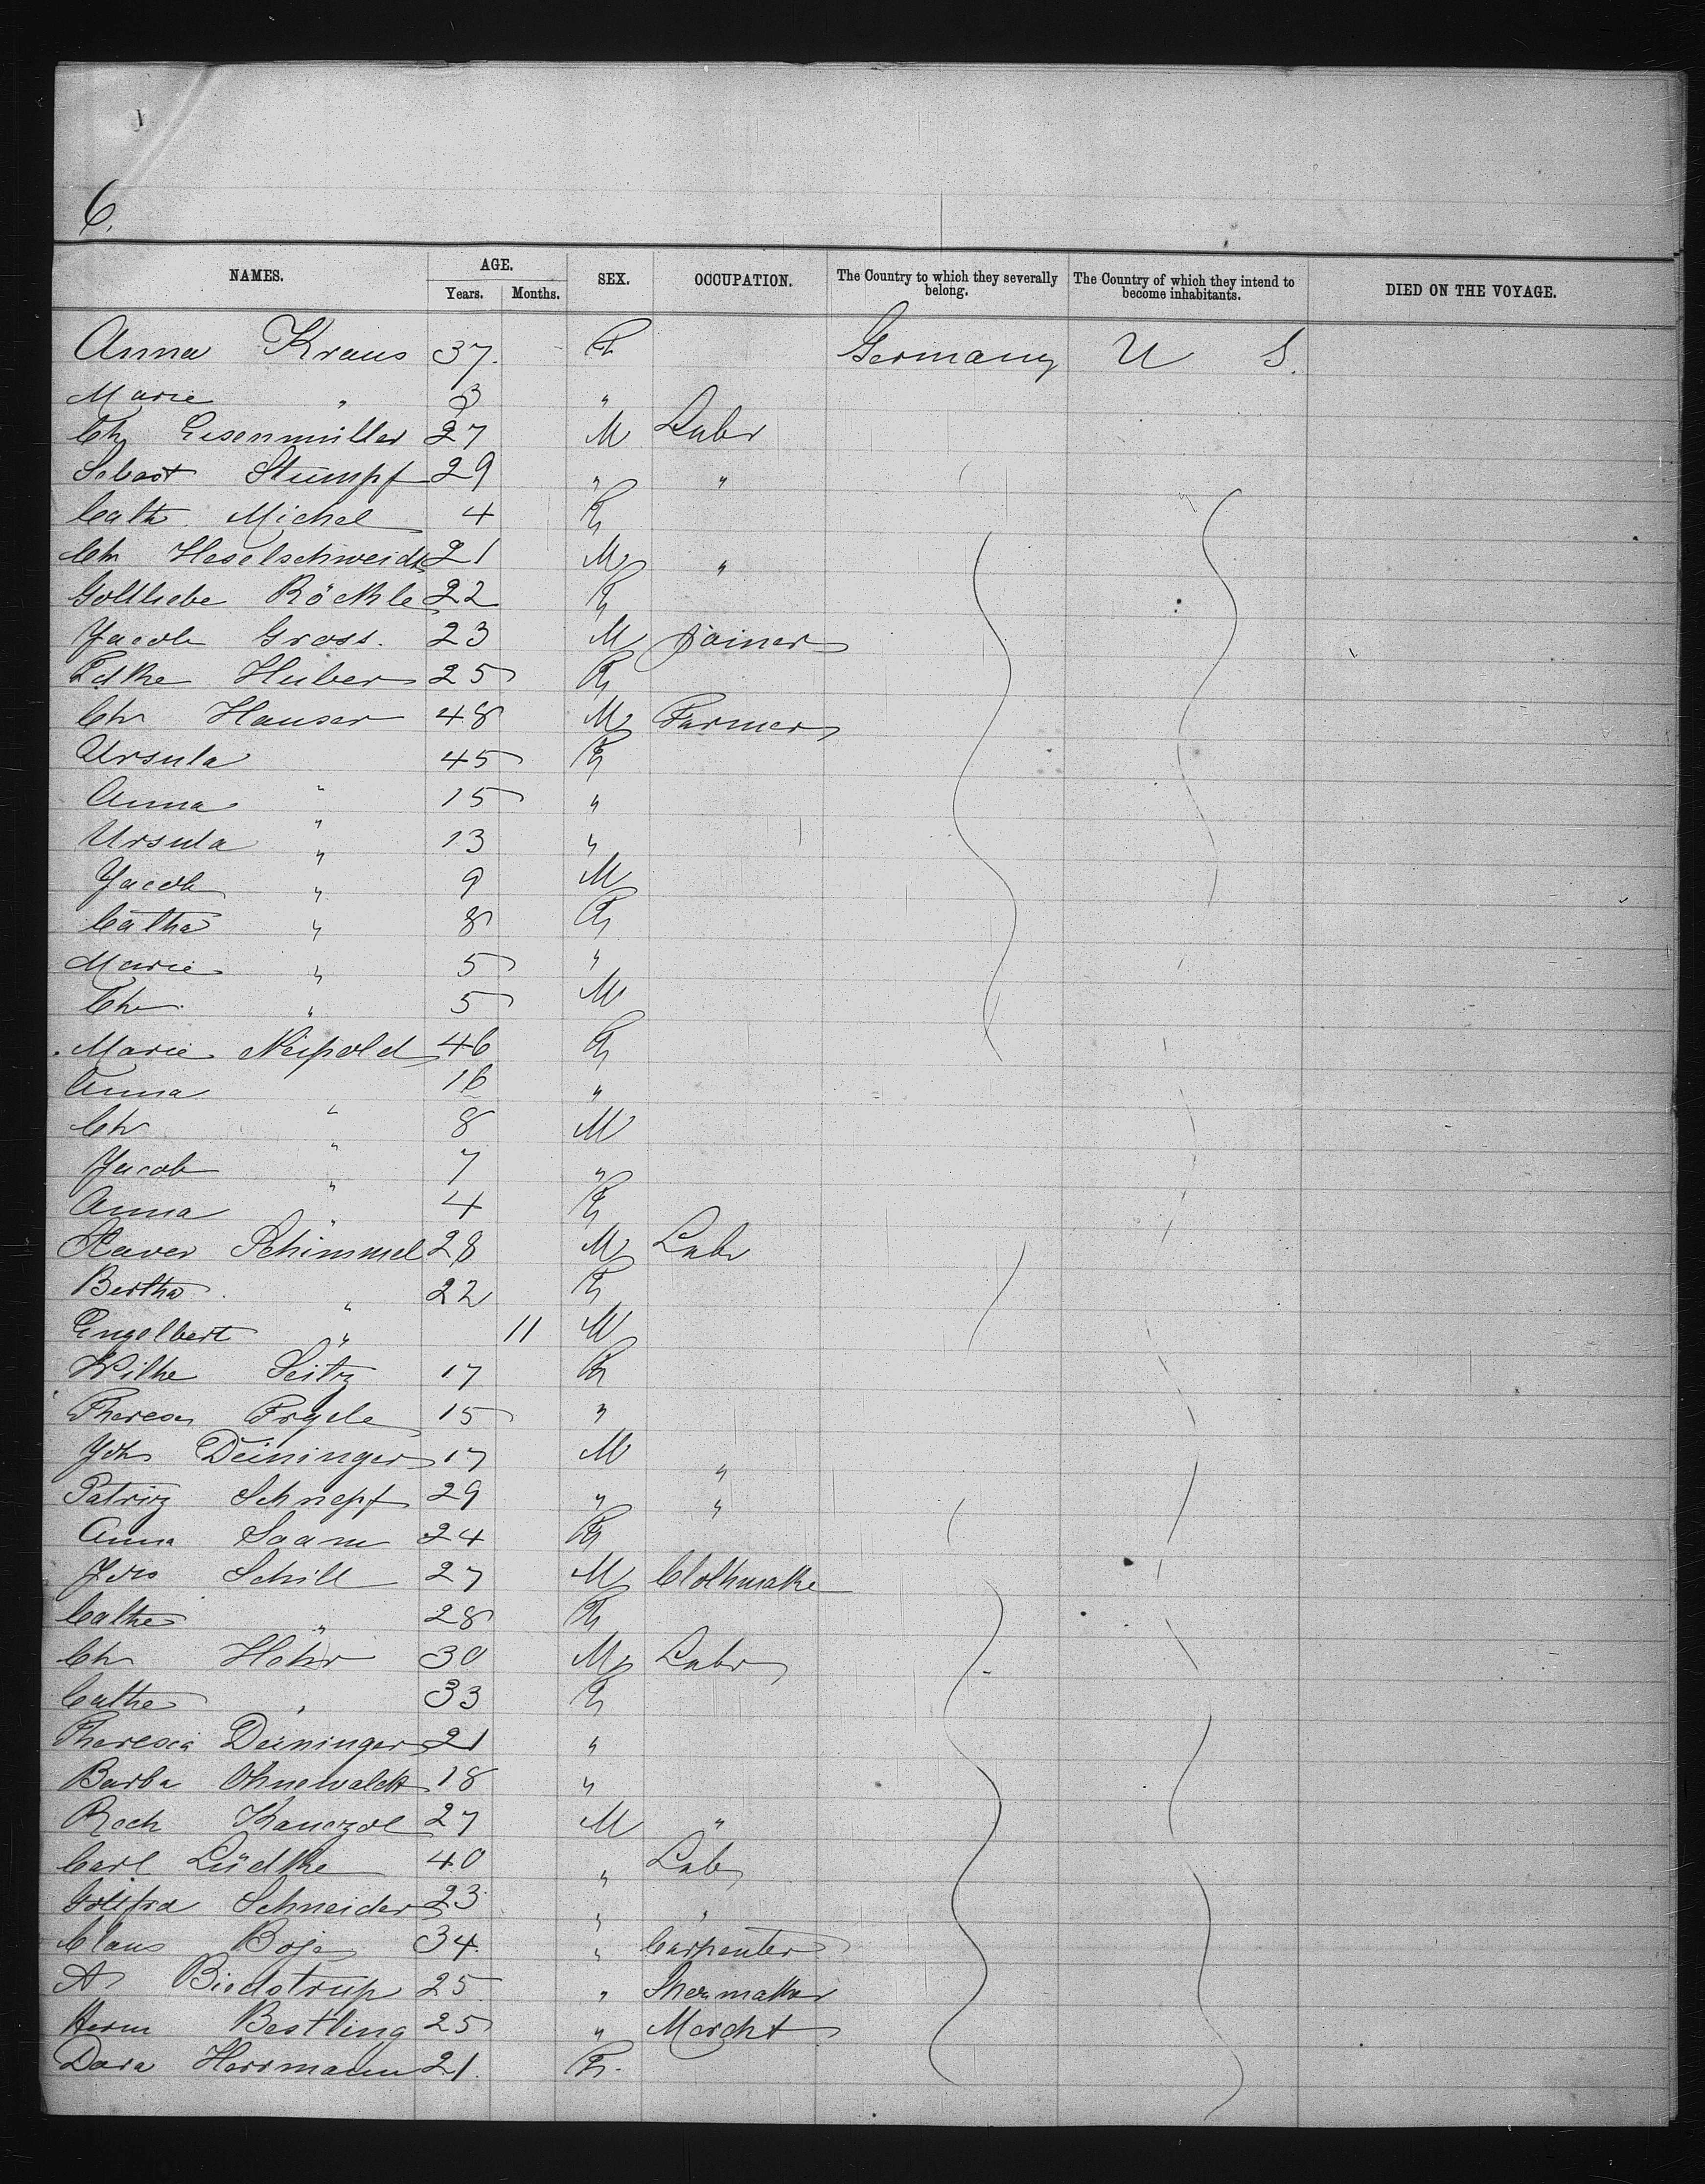 6.
NAMES. AGE. SEX. OCCUPATION. The Country to which they severally belong. The Country of which they intend to become inhabitants. DIED ON THE VOYAGE.
Years. Months.
Anna Kraus 37. F Germany U S.
Marie " 3 "
Ch Eisenmüller 27 M Labr
Sebast Stumpf 29 " "
Cath Michel 4 F
Ch Heselschweidt 21 M "
Gottliebe Röckle 22 F
Jacob Gross. 23 M Joiner
Huber 25 F
Ch Hauser 48 M Farmer
Ursula 45 F
Anna " 15 "
Ursula " 13 "
Jacob " 9 M
Cathe " 8 F
Marie " 5 "
Ch " 5 M
Marie Neipold 46 F
Anna 16 "
Ch " 8 M
Jacob " 7 "
Anna " 4 F
Xaver Schimmel 28 M Labr
Bertha " 22 F
Engelbert " 11 M
Wilhe Seitz 17 F
Theresa 15 "
Joh Deininger 17 M "
Patriz Schnepf 29 " "
Anna Saam 24 F
Schill 27 M Clothmake
Cathe " 28 F
Ch Hohr 30 M Labr
Cathe " 33 F
Theresia Deininger 21 "
Barba Ohnewaldt 18 "
Roch 27 M "
Carl Lüdtke 40 " Lab
Gottfrd Schneider 23 " "
Claus Boje 34. " Carpenter
A Biedstrup 25 " Shoemaker
Herm Bestling 25 " Marcht
Dora Herrmann 21. F.